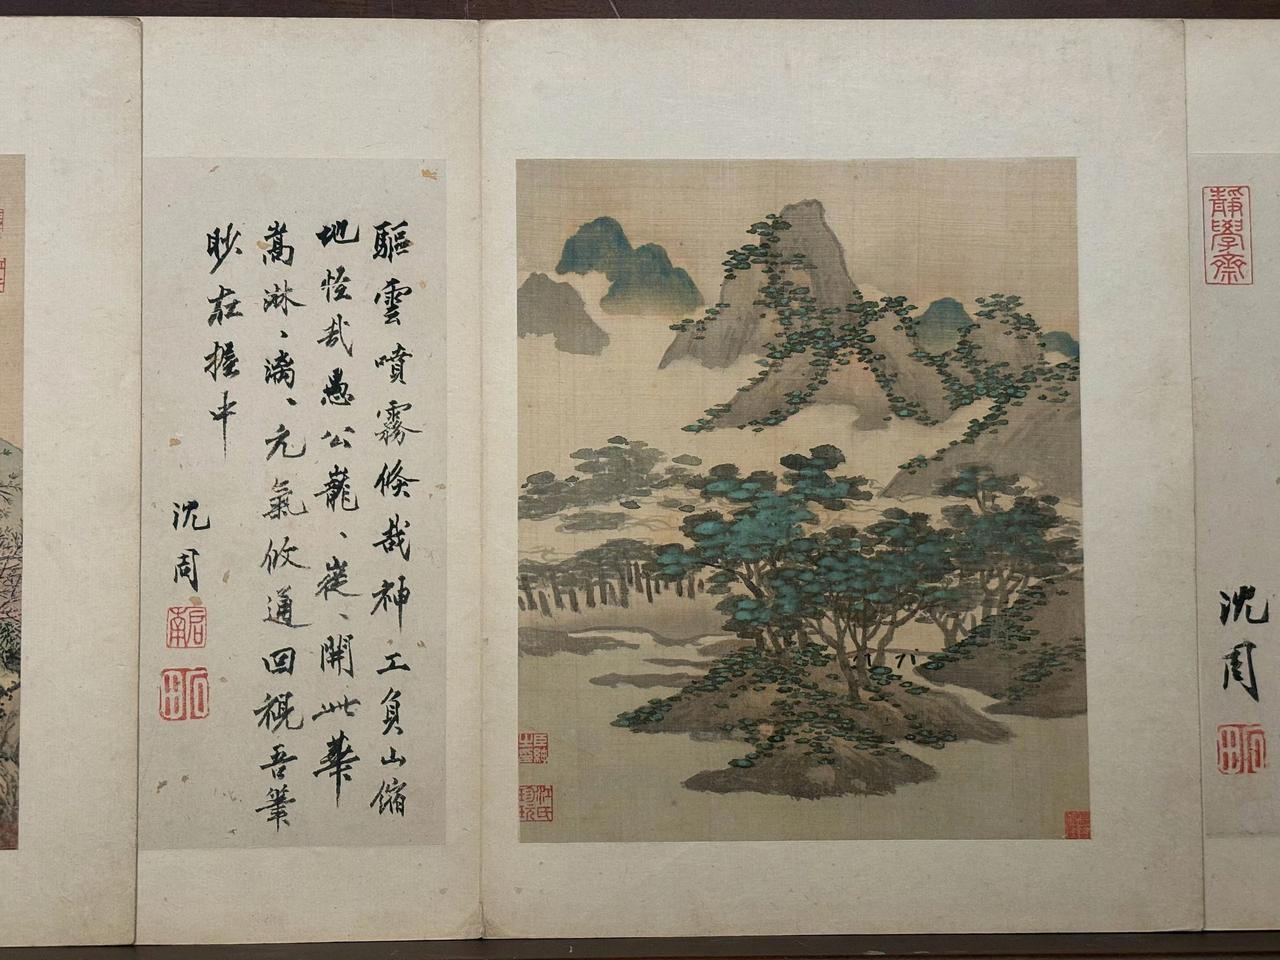 驅雲噴霧倏哉神工負山縮
地怪哉愚公巃、嵸、開此華
嵩淋、漓、元氣攸通回視吾筆
眇在握中
沈周
啟南
靜學齋
沈周